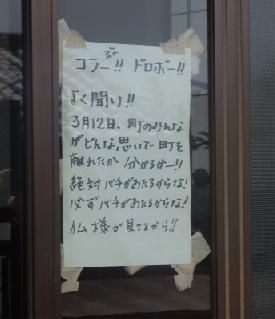 コラー!! ドロボー!!
よく聞け!!
3月12日、町のみんな
がどんな思いで町を
離れたか 分かるかー!!
絶対バチがあたるからな!
必ずバチがあたるからな!
仏様が見てるから!!